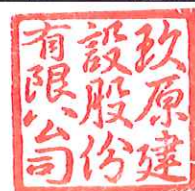 玖原建
設股份
有限公司